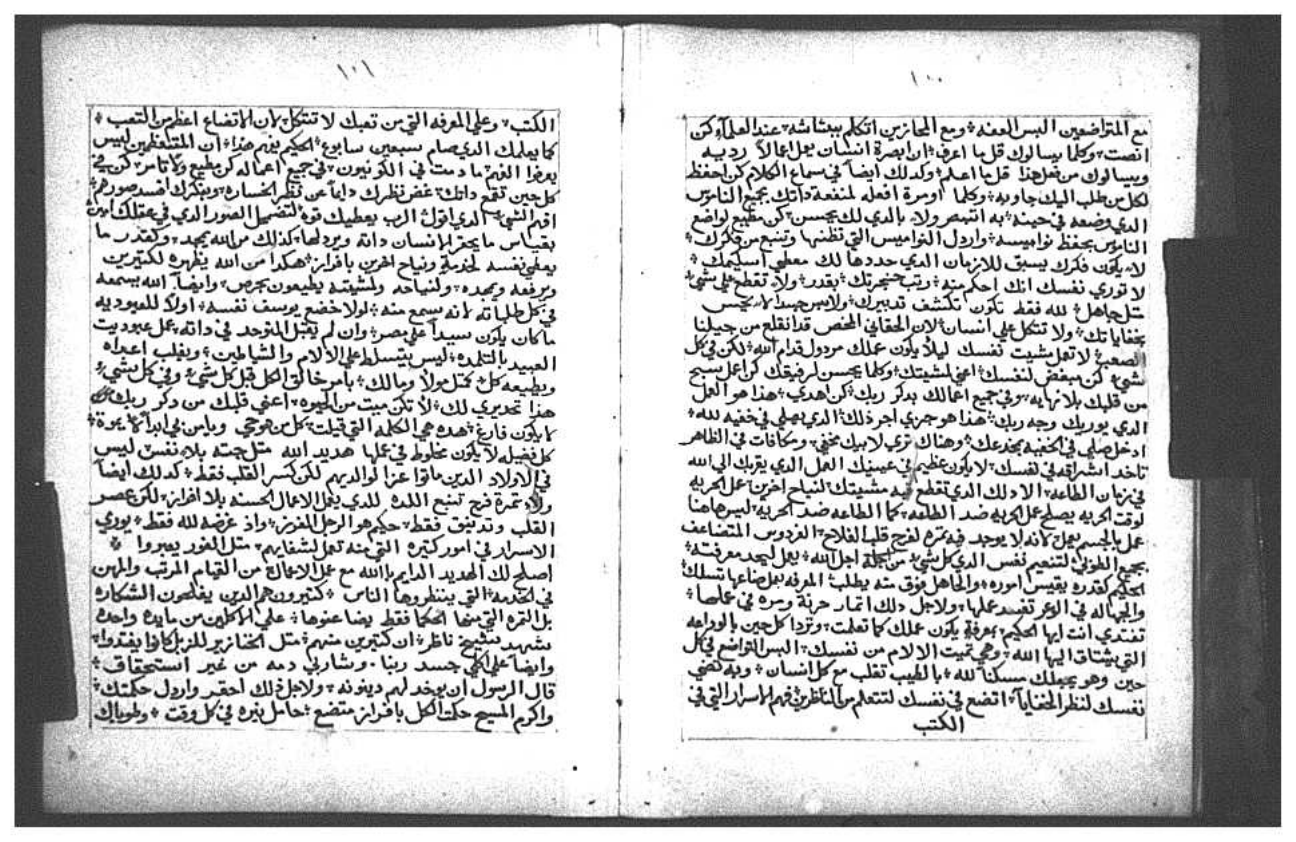 ١٠٠
مع المتواضعين البس العفه ومع الحازين اتكلم ببشاشه عند العلمآء كن
انصت وكلما يسالوك قل ما اعرف ان ابصرة انسان يعمل اعمالاً رديه
ويسالوك من فعل هذا قل ما اعلم وكدلك ايضاً في سماع الكلام كن احفظ
لكل من طلب اليك جاوبه وكلما اومرة افعله لمنفعة داتك بجميع الناموس
الدي وضعه في حينه به انتهر ولا بالدي لك يحسن كن مطيع لواضع
الناموس بحفظ نواميسه واردل النواميس التي تظنها وتنبع من فكرك
لا يكون فكرك يسبق للازمان الدي حددها لك معطي اسكيمك
لا توري نفسك انك احكم منه ورتب حنجرتك بقدر ولا تقطع علي شي
متل جاهل لله فقط تكون تكشف تدبيرك ولابس جسداً لا يحس
بخفاياتك ولا تتكل علي انسان لان الحقاني المخص قد انقلع من جيلنا
الصعب لا تعمل مشيت نفسك ليلا يكون عملك مردول قدام الله لكن في كل
شي كن مبغض لنفسك اعني لمشيتك وكلما يحسن لرفيقك كن اعمل سبح
من قلبك بلا نهايه وفي جميع اعمالك بدكر ربك كن اهدي هذا هو العمل
الدي يوريك وجه ربك هذا هو جزي اجر ذلك الدي يصلي في خفيه لله
ادخل صلي في الخفيه بمخدعك وهناك تري لابيك مخفي ومكافات في الظاهر
تاخد اشراقه في نفسك لا يكون عظيم في عينيك العمل الدي يقربك الي الله
في زمان الطاعه الا دلك الدي تقطع فيه مشيتك لنياح اخرين عمل الحريه
لوقت الحريه يصلح عمل الحريه ضد الطاعه كما الطاعه ضد الحريه ليس هاهنا
عمل بالجسم يعمل لانه لا يوجد فيه تمره لفرح قلب الفلاح الفردوس المتضاعف
بجميع الطوبي لتنعيم نفس الدي كل شي من اجل الله يعمل ليجد معرفته
الحكيم كقدره يقيس اموره والجاهل فوق منه يطلب المعرفه بعمل صناعها تسلك
والجهاله في الوعر تفسد عملها ولاجل دلك اتمار حزنة ومره في عملها
تفتدي انت ايها الحكيم بمعرفة يكون عملك كما تعلمت وتزدا كل حين بالوداعه
التي يشتاق اليها الله وهي تميت الالام من نفسك البس التواضع في كل
حين وهو يجعلك مسكناً لله بالطيب تقلب مع كل انسان وبه تضي
نفسك لنظر الخفايا اتضع في نفسك لتتعلم من الناظرين فهم الاسرار التي في
الكتب
١٠١
الكتب وعلي المعرفه التي من تعبك لا تتكل لان الاتضاع اعظم من التعب
كما يعلمك الدي صام سبعين سابوع الحكيم يفهم هذا ان المتعظمين ليس
يعرفوا الفهم ما دمت في الكونيون في جميع اعماله كن مطيع ولا تامر كن في
كل حين تقمع داتك غض نظرك دايماً عن نظر الخساره وبفكرك افسد صورهم
افهم الشي الدي اقول الرب يعطيك قوة لتضمحل الصور الدي في عقلك
بقياس ما يحقر الانسان داته ويردلها كذلك من الله يمجد وكقدر ما
يعطي نفسه لخدمة ونياح اخرين بافراز هكدا من الله يظهره لكتيرين
ويرفعه ويمجده ولنياحه ولمشيته يطيعون بحرص وايضاً الله يسمعه
في كل طلباته لانه يسمع منه لولا خضع يوسف نفسه اولاً للعبوديه
ما كان يكون سيداً علي مصر وان لم يقبل المتوحد في داته عمل عبوديت
العبيد بالتلمده ليس يتسلط علي الالام والشياطين ويغلب اعداه
ويطيعه كل كمتل مولاً ومالك بامر خالق الكل قبل كل شي وفي كل شي
هذا تحديري لك لا تكن ميت من الحيوه اعني قلبك من دكر ربك
لا يكون فارغ هده هي الكلمه التي قيلت كل من هو حي ويامن بي ابداً لا يموة
كل فضيله لا يكون مخلوط في عملها هديد الله متل جته بلا نفس ليس
في الاولاد الدين ماتوا عزا لوالديهم لكن كسر القلب فقط كدلك ايضاً
ولا تمرة فرح تنبع اللده للدي يعمل الاعمال الحسنه بلا افراز لكن عصر
القلب وتدنيق فقط حكيم هو الرجل المفرز واذ غرضه لله فقط يوري
الاسرار في امور كتيره التي منه تعمل لشفايهم متل الغور يعبروا
اصلح لك الهديد الدايم بالله مع عمل الاعمال من القيام المرتب والمهن
في الخدمه التي ينتظروها الناس كتيرون هم الدين يفلحون الشكاره
بل التمره التي منها الحكما فقط يضاعنوها علي الاكلين من مايدة واحده
شهد شيخ ناظر ان كتيرين منهم متل الخنازير للزبل كانوا يغتدوا
وايضا علي اكلي جسد ربنا وشاربي دمه من غير استحقاق
قال الرسول ان يوخد لهم دينونه ولاجل ذلك احقر واردل حكمتك
واكرم المسيح حكمة الكل بافراز متضع حامل نيره في كل وقت وطوباك